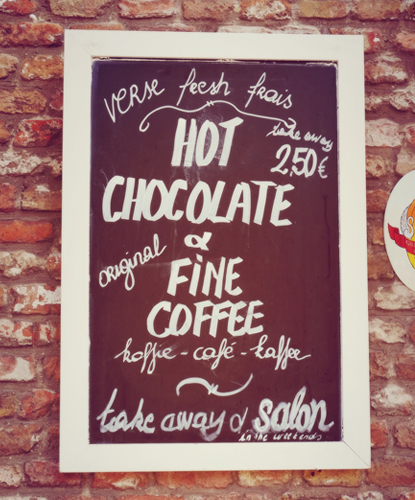 verse fresh frais
take away
2,50€
HOT
CHOCOLATE
&
original
FINE
COFFEE
koffie - café - kaffee
take away & salon
in the weekends